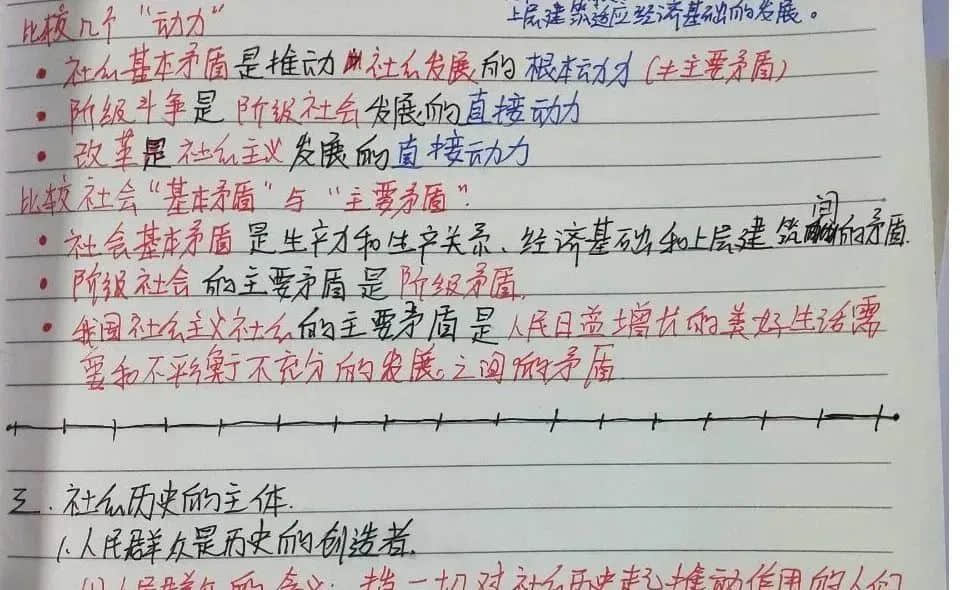 上层建筑适应经济基础的发展。
比较几个“动力”
• 社会基本矛盾是推动社会发展的根本动力(≠主要矛盾)
• 阶级斗争是阶级社会发展的直接动力
• 改革是社会主义发展的直接动力
比较社会“基本矛盾”与“主要矛盾”.
• 社会基本矛盾是生产力和生产关系、经济基础和上层建筑间的矛盾.
• 阶级社会的主要矛盾是阶级矛盾.
• 我国社会主义社会的主要矛盾是人民日益增长的美好生活需
要和不平衡不充分的发展。之间的矛盾
三.社会历史的主体.
1.人民群众是历史的创造者.
(1)人民群众的含义:指一切对社会历史起推动作用的人们